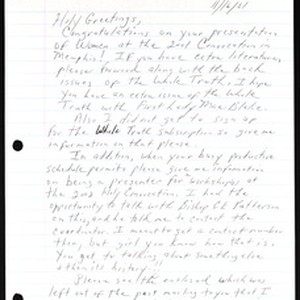 11/16/01
Holy Greetings,
Congratulations on your presentation
of Women at the 2nd Convocation in
Memphis! If you have extra literature
please forward along with the back
issues of the Whole Truth. I hope
you have an extra issue of the Whole
Truth with First Lady Mae Blake.
Also I did not get to sign up
for the Whole Truth subscription so give me
information on that please.
In addition, when your busy productive
schedule permits please give me information
on being a presenter for workshops at
the 2nd Holy Convocation. I had the
opportunity to talk with Bishop GE Patterson
on this, and he told me to contact the
coordinator. I meant to get a contact number
then, but girl you know how that is.
You get to talking about something else
and it's history!!
Please see the enclosed which was
left out of the past mailing to you that I